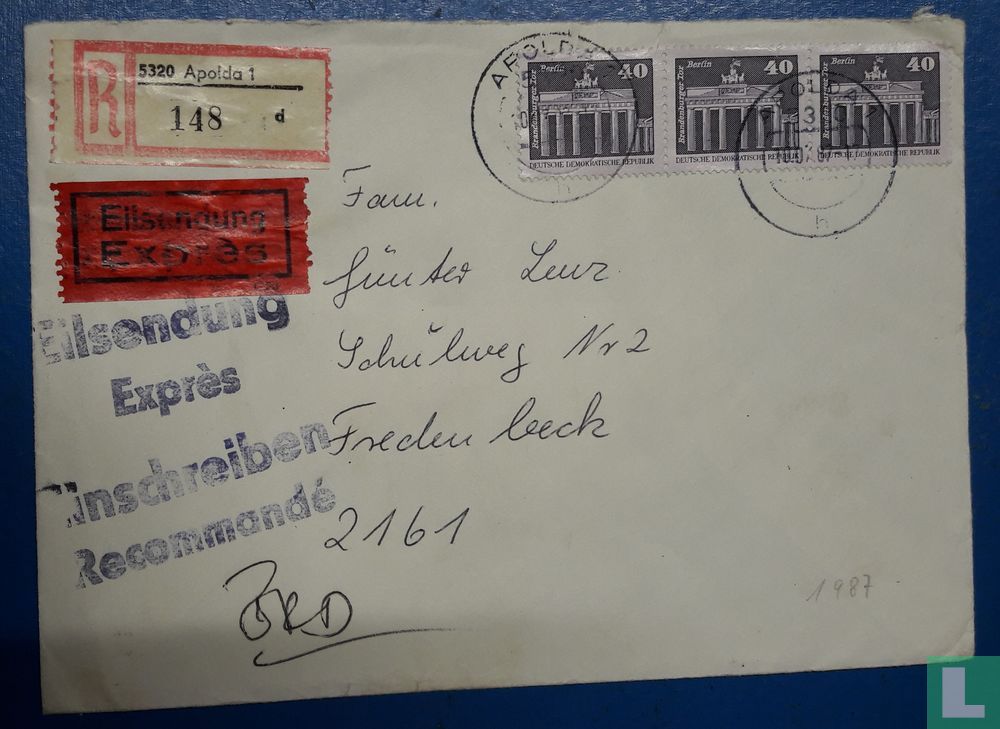 R
5320 Apolda 1
148 d
Eilsendung
Exprès
Eilsendung
Exprès
Einschreiben
Recommandé
APOLDA
h
Berlin 40
Brandenburger Tor
DEUTSCHE DEMOKRATISCHE REPUBLIK
Berlin 40
Brandenburger Tor
DEUTSCHE DEMOKRATISCHE REPUBLIK
Berlin 40
Brandenburger Tor
DEUTSCHE DEMOKRATISCHE REPUBLIK
h
Fam.
Günter Lenz
Schulweg Nr 2
Fredenbeck
2161
BRD
1987
L